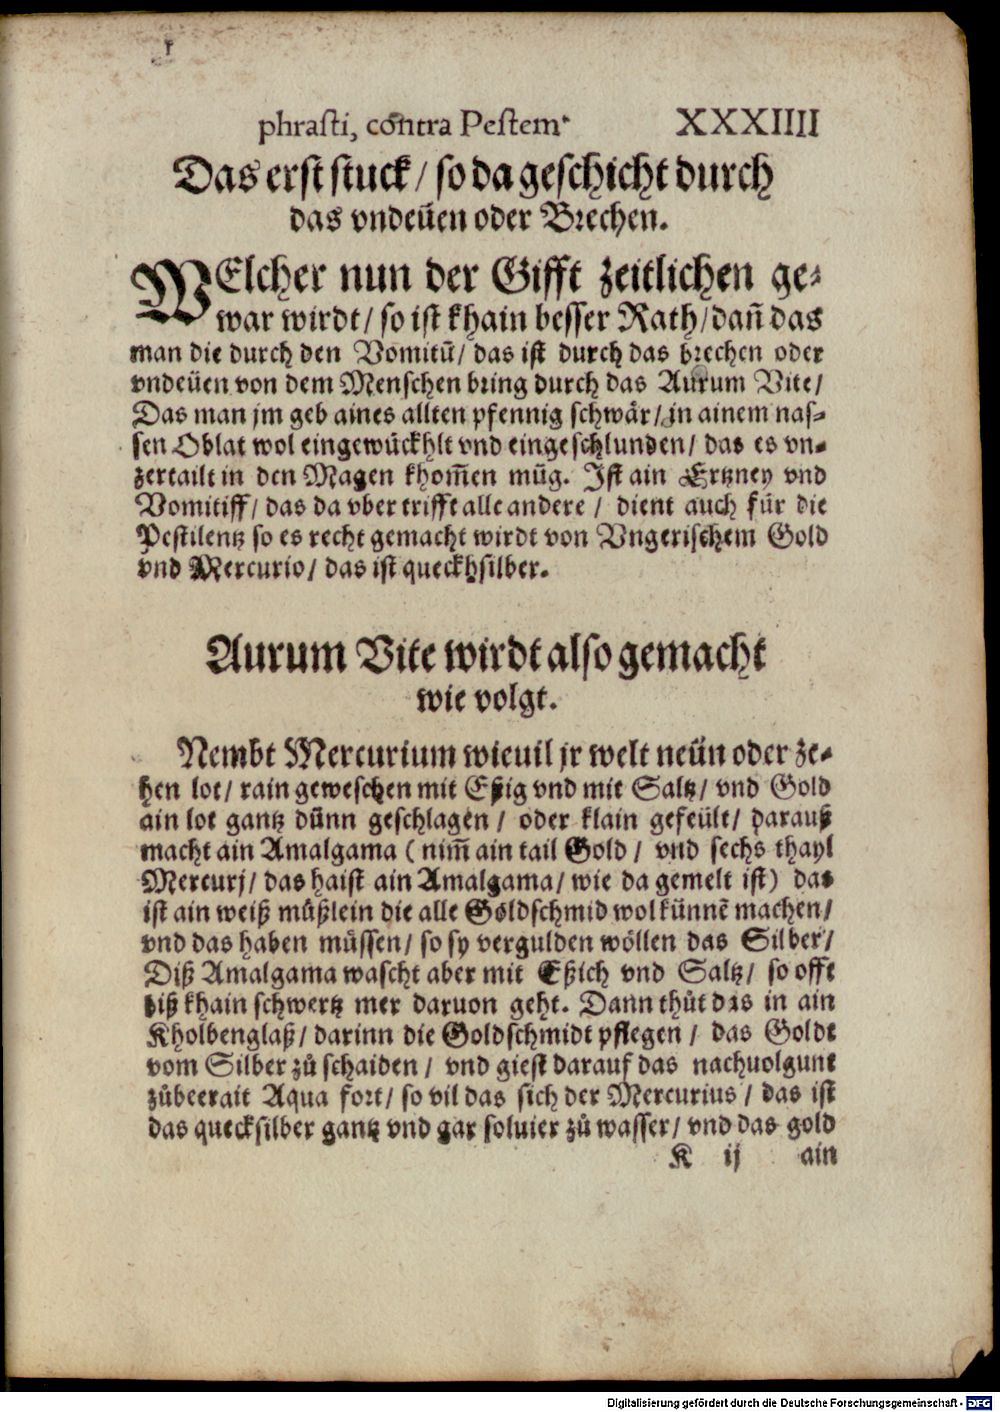 phrasti, contra Pestem. XXXIIII
Das erst stuck / so da geschicht durch
das vndeüen oder Brechen.
WElcher nun der Gifft zeitlichen ge-
war wirdt / so ist khain besser Rath / dañ das
man die durch den Vomitū / das ist durch das brechen oder
vndeüen von dem Menschen bring durch das Aurum Vite /
Das man jm geb aines allten pfennig schwär / in ainem nas-
sen Oblat wol eingewückhlt vnd eingeschlunden / das es vn-
zertailt in den Magen khom̃en müg. Ist ain Ertzney vnd
Vomitiff / das da vber trifft alle andere / dient auch für die
Pestilentz so es recht gemacht wirdt von Vngerischem Gold
vnd Mercurio / das ist queckhsilber.
Aurum Vite wirdt also gemacht
wie volgt.
Nembt Mercurium wieuil jr welt neün oder ze-
hen lot / rain geweschen mit Eßig vnd mit Saltz / vnd Gold
ain lot gantz dünn geschlagen / oder klain gefeült / darauß
macht ain Amalgama ( nim̃ ain tail Gold / vnd sechs thayl
Mercurj / das haist ain Amalgama / wie da gemelt ist ) das
ist ain weiß müßlein die alle Goldschmid wol künnē machen /
vnd das haben müssen / so sy vergulden wöllen das Silber /
Diß Amalgama wascht aber mit Eßich vnd Saltz / so offt
biß khain schwertz mer daruon geht. Dann thůt das in ain
Kholbenglaß / darinn die Goldschmidt pflegen / das Goldt
vom Silber zů schaiden / vnd giest darauf das nachuolgunt
zůbeerait Aqua fort / so vil das sich der Mercurius / das ist
das quecksilber gantz vnd gar soluier zů wasser / vnd das gold
K ij ain
Digitalisierung gefördert durch die Deutsche Forschungsgemeinschaft - DFG